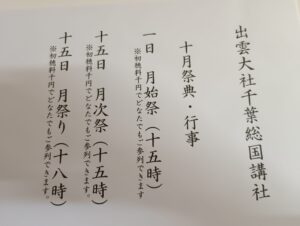 出雲大社千葉総国講社
十月祭典・行事
一日　月始祭（十五時）
※初穂料千円でどなたでもご参列できます
十五日　月次祭（十五時）
※初穂料千円でどなたでもご参列できます。
十五日　月祭り（十八時）
※初穂料千円でどなたでもご参列できます。